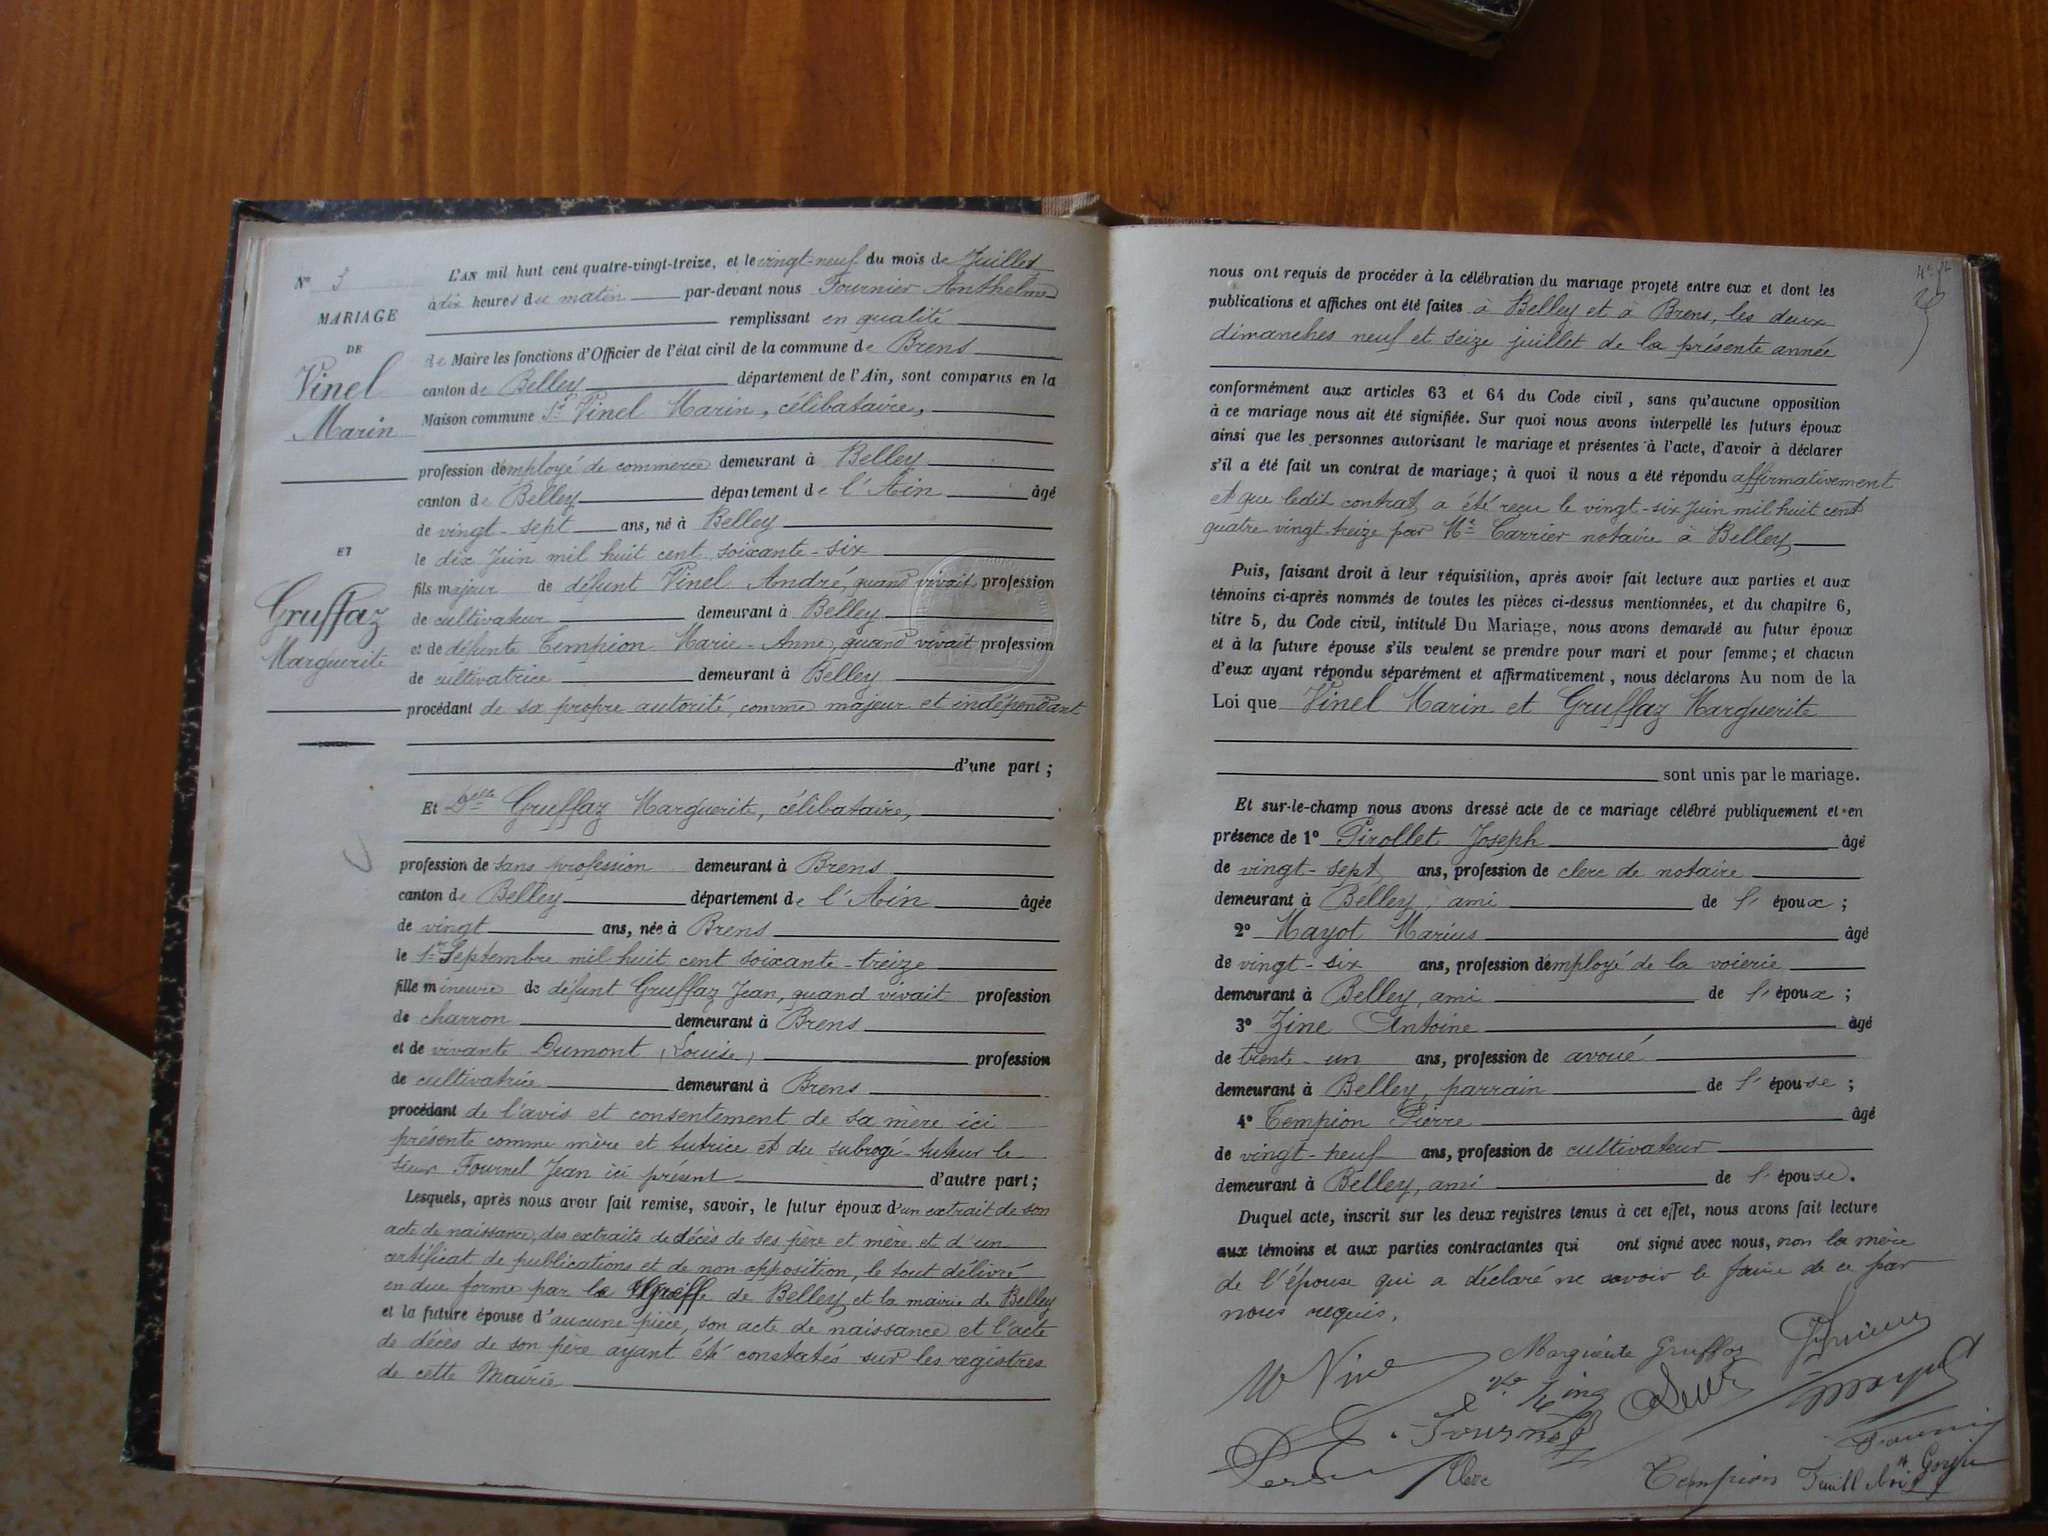 N° 3
MARIAGE
DE
Vinel
Marin
ET
Gruffaz
Marguerite
L'AN mil huit cent quatre-vingt-treize, et le vingt-neuf du mois de Juillet
à dix heures du matin par-devant nous Fournier Anthelme
remplissant en qualité
de Maire les fonctions d'Officier de l'état civil de la commune de Brens
canton de Belley département de l'Ain, sont comparus en la
Maison commune Sr Vinel Marin, célibataire,
profession d'employé de commerce demeurant à Belley
canton de Belley département de l'Ain âgé
de vingt-sept ans, né à Belley
le dix Juin mil huit cent soixante-six
fils majeur de défunt Vinel André, quand vivait profession
de cultivateur demeurant à Belley
et de défunte Tempion Marie-Anne, quand vivait profession
de cultivatrice demeurant à Belley
procédant de sa propre autorité, comme majeur et indépendant
d'une part ;
Et Delle Gruffaz Marguerite, célibataire,
profession de sans profession demeurant à Brens
canton de Belley département de l'Ain âgée
de vingt ans, née à Brens
le 1er Septembre mil huit cent soixante-treize
fille mineure de défunt Gruffaz Jean, quand vivait profession
de charron demeurant à Brens
et de vivante Dumont (Louise) profession
de cultivatrice demeurant à Brens
procédant de l'avis et consentement de sa mère ici
présente comme mère et tutrice et du subrogé-tuteur le
sieur Fournel Jean ici présent d'autre part ;
Lesquels, après nous avoir fait remise, savoir, le futur époux d'un extrait de son
acte de naissance, des extraits de décès de ses père et mère et d'un
certificat de publications et de non opposition, le tout délivré
en due forme par le greffe de Belley et la mairie de Belley
et la future épouse d'aucune pièce, son acte de naissance et l'acte
de décès de son père ayant été constatés sur les registres
de cette Mairie
nous ont requis de procéder à la célébration du mariage projeté entre eux et dont les
publications et affiches ont été faites à Belley et à Brens, les deux
dimanches neuf et seize juillet de la présente année
conformément aux articles 63 et 64 du Code civil, sans qu'aucune opposition
à ce mariage nous ait été signifiée. Sur quoi nous avons interpellé les futurs époux
ainsi que les personnes autorisant le mariage et présentes à l'acte, d'avoir à déclarer
s'il a été fait un contrat de mariage ; à quoi il nous a été répondu affirmativement
et que ledit contrat a été reçu le vingt-six Juin mil huit cent
quatre vingt-treize par Me Carrier notaire à Belley
Puis, faisant droit à leur réquisition, après avoir fait lecture aux parties et aux
témoins ci-après nommés de toutes les pièces ci-dessus mentionnées, et du chapitre 6,
titre 5, du Code civil, intitulé Du Mariage, nous avons demandé au futur époux
et à la future épouse s'ils veulent se prendre pour mari et pour femme ; et chacun
d'eux ayant répondu séparément et affirmativement, nous déclarons Au nom de la
Loi que Vinel Marin et Gruffaz Marguerite
sont unis par le mariage.
Et sur-le-champ nous avons dressé acte de ce mariage célébré publiquement et en
présence de 1° Pirollet Joseph âgé
de vingt-sept ans, profession de clerc de notaire
demeurant à Belley, ami de l'époux ;
2° Mayot Marius âgé
de vingt-six ans, profession d'employé de la voierie
demeurant à Belley, ami de l'époux ;
3° Zine Antoine âgé
de trente-un ans, profession de avoué
demeurant à Belley, parrain de l'épouse ;
4° Tempion Pierre âgé
de vingt-neuf ans, profession de cultivateur
demeurant à Belley, ami de l'épouse.
Duquel acte, inscrit sur les deux registres tenus à cet effet, nous avons fait lecture
aux témoins et aux parties contractantes qui ont signé avec nous, non la mère
de l'épouse qui a déclaré ne savoir le faire de ce par
nous requis.
M Vinel
Marguerite Gruffaz
Fournel
Mayot
Tempion